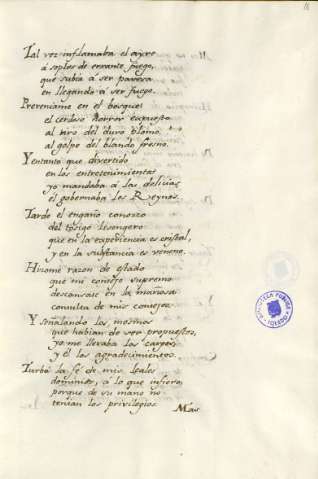 Tal vez inflamaba el ayre
a soplos de errante fuego,
que subia á ser pavesa
en llegando á ser fuego.
en el bosque
el cerdoso horror expuesto
al tiro del duro plomo,
al golpe del blando fresno.
Y entanto que divertido
en los entretenimientos
yo mandaba á las delicias,
el gobernaba los Reynos.
Tarde el engaño conozco
del tosigo lisongero
que en la experiencia es cristal,
y en la substancia es veneno.
Hizome razon de estado
que mi consejo supremo
descansase en la
consulta de mis consejos.
Y señalando los mismos
que habian de ser propuestos,
yo me llevaba los cargos
y él los agradecimientos.
Turbó la fé de mis leales
dominios, a lo que infiero,
porque de su mano no
tenian los privilegios.
Mas
BIBLIOTECA PUBLICA
TOLEDO